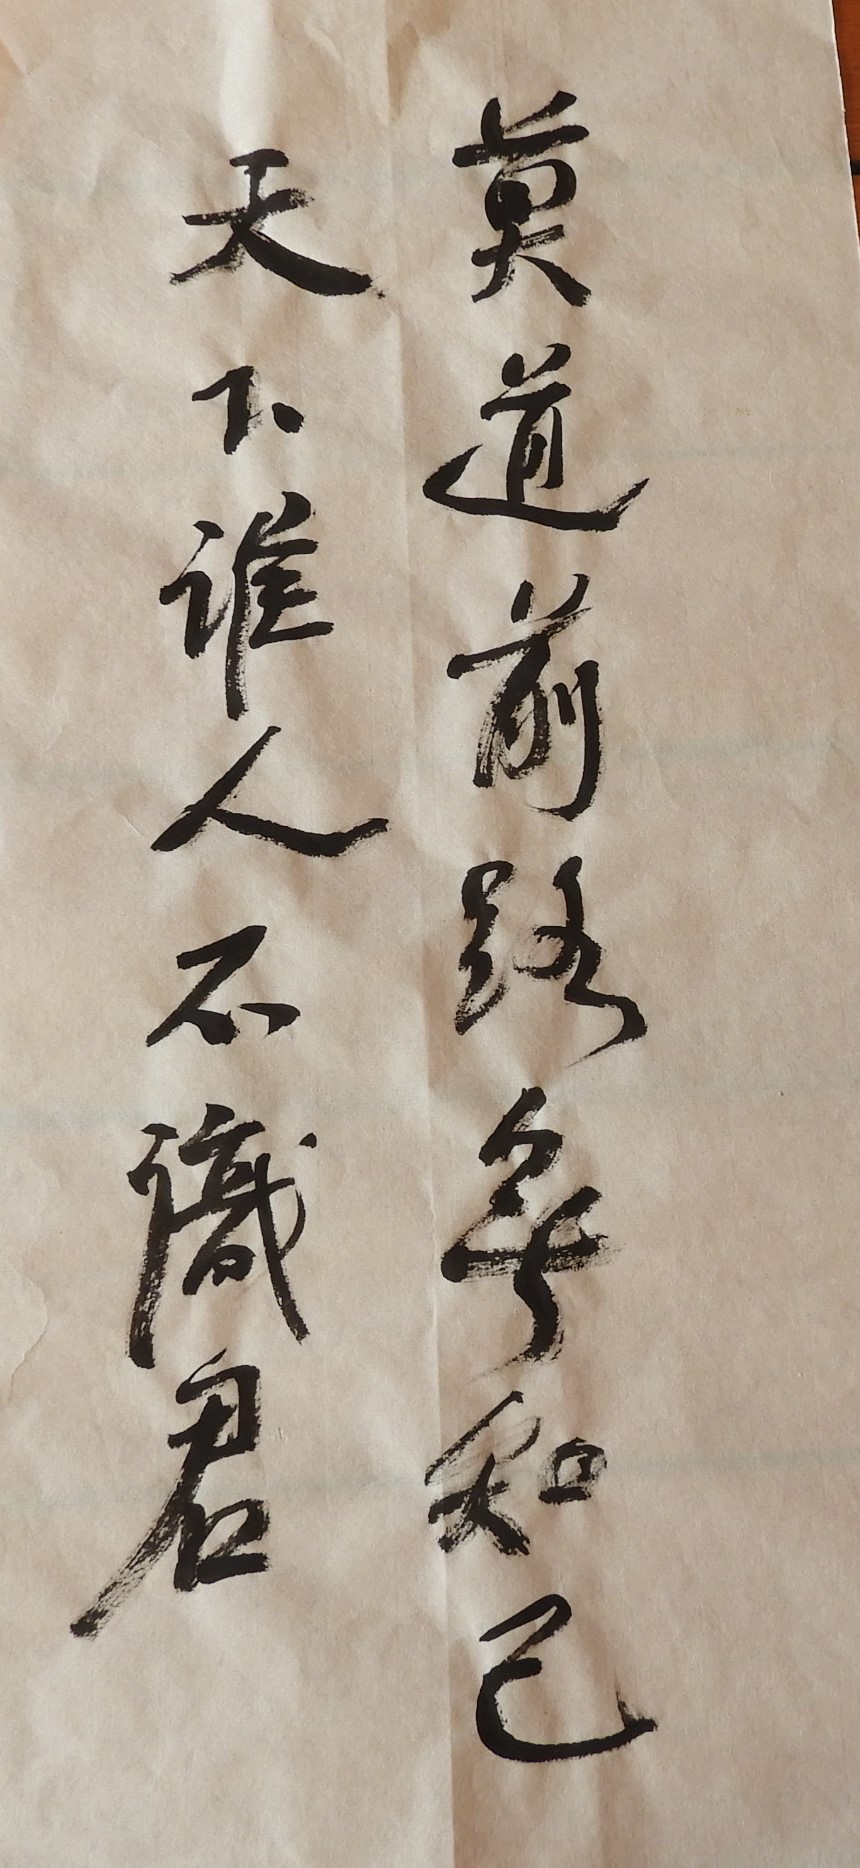 莫道前路無知己
天下谁人不識君